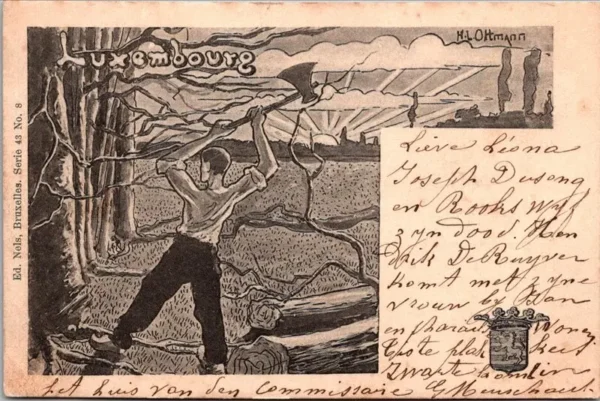 Luxembourg
H. L. Ottmann
Ed. Nels, Bruxelles. Serie 43 No. 8
Lieve Léona
Joseph Duseng
en Rooks Wijf
zijn dood. Hen
drik De Ruyver
komt met zyne
vrouw by Jan
en
woonen
Groote plak
Zwarte
het huis van den Commissaire